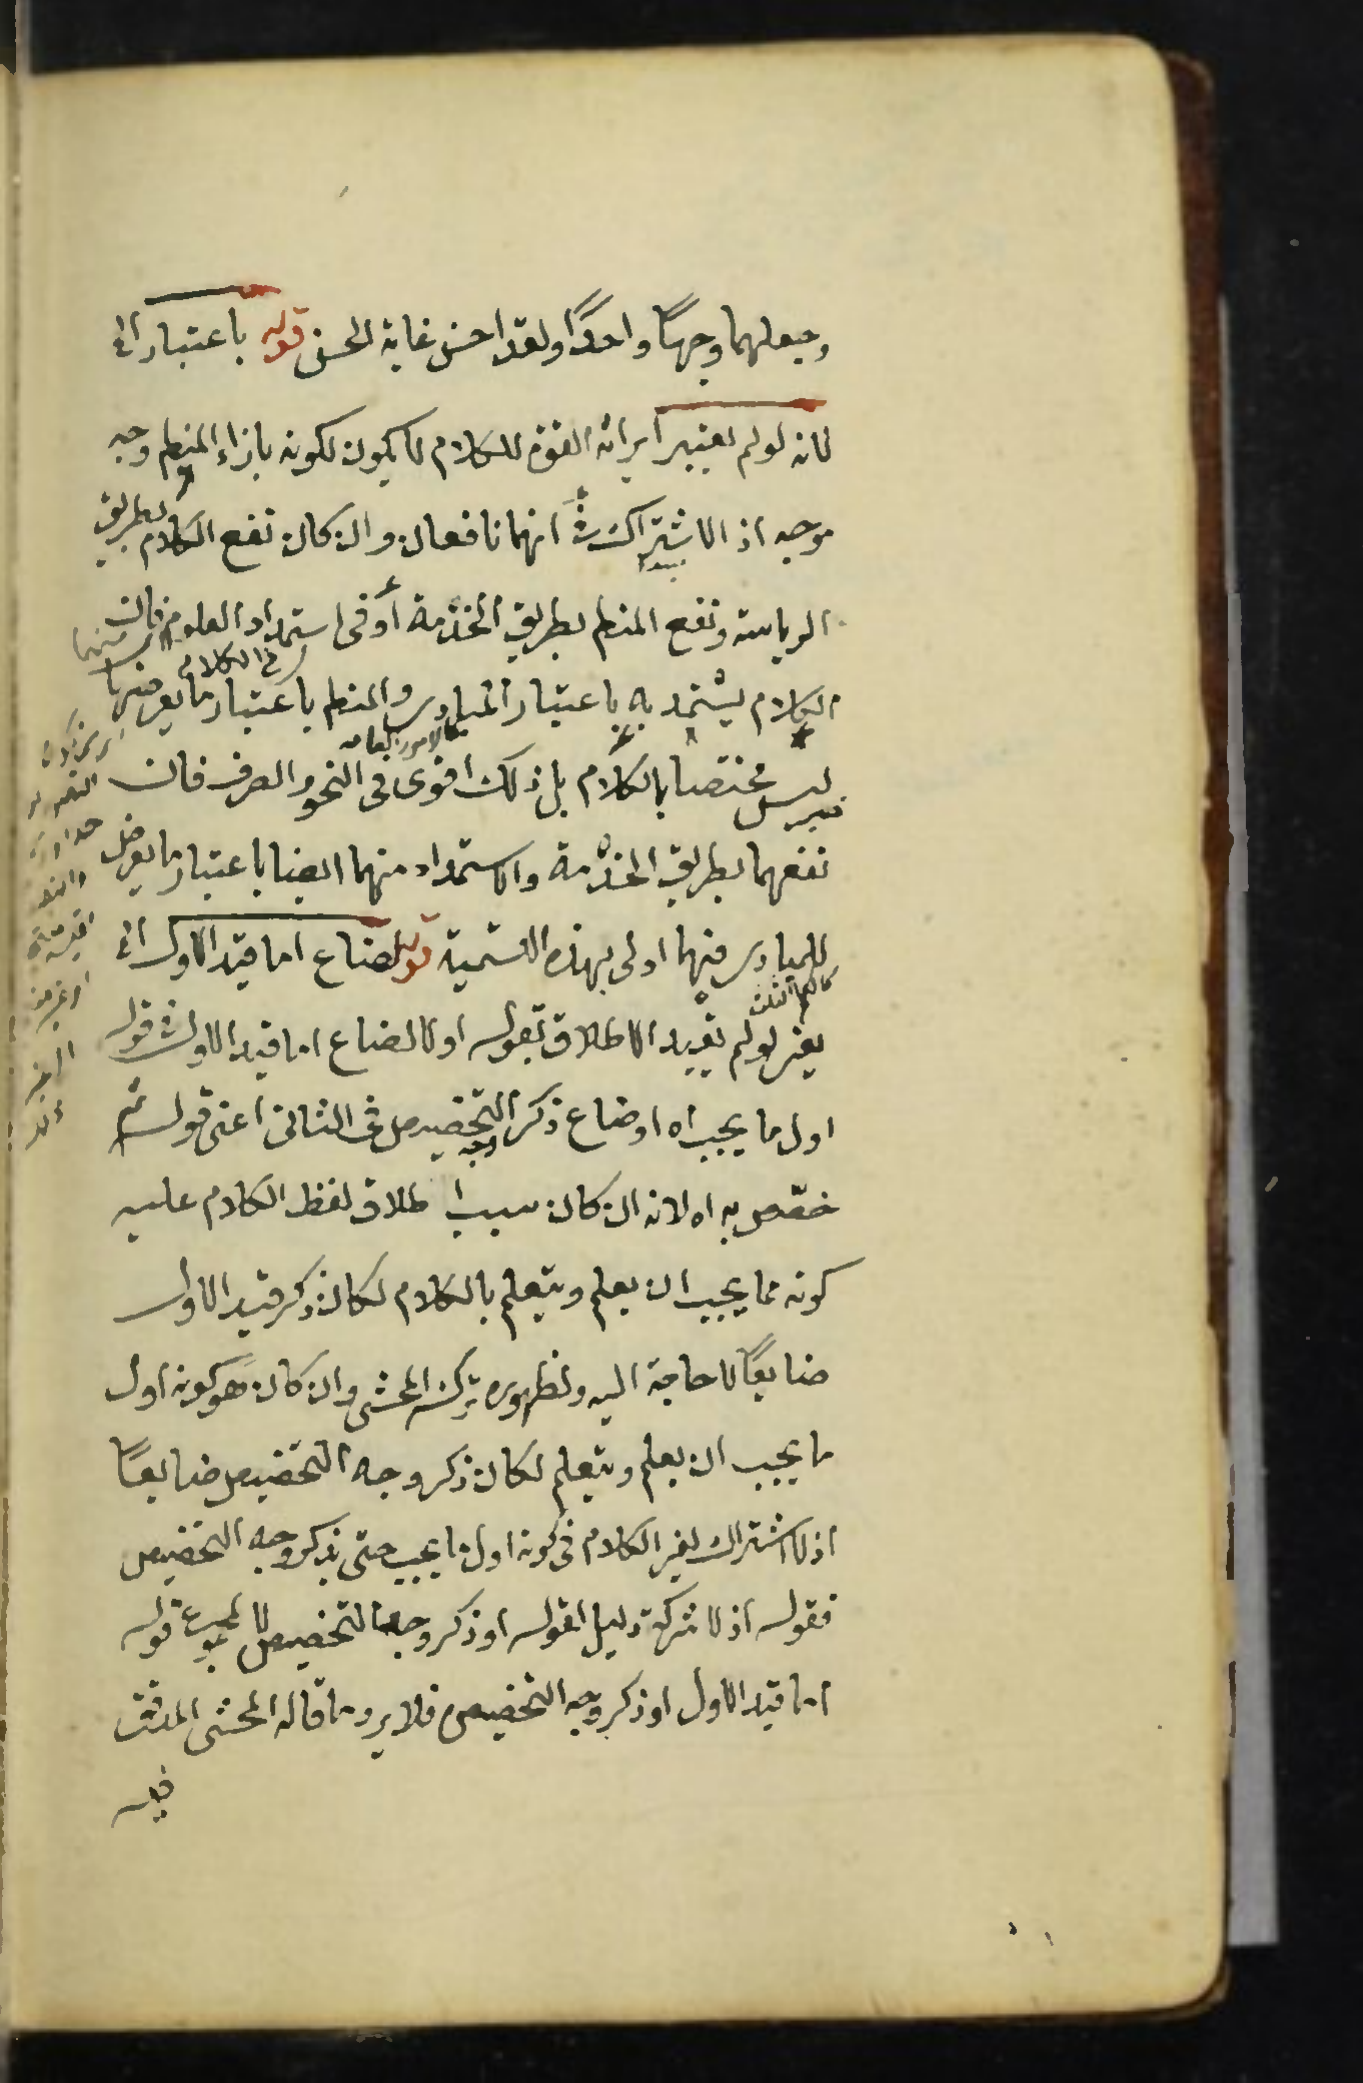 وجعلهما وجهًا واحدًا ولقد احسن غاية الحسن قوله باعتبار الخ
لانه لو لم يعتبر ايراثه القوة للكلام لا يكون لكونه بازاء المنطق وجه
موجه اذ الاشتراك في انهما نافعان وان كان نفع الكلام بطريق
الرياسة ونفع المنطق بطريق الخدمة أو في استمداد العلوم فان
الكلام يستمد به باعتبار المبادى والمنطق باعتبار ما يعرضها
ليس مختصا بالكلام بل ذلك اقوى في النحو والصرف فان
نفعهما بطريق الخدمة والاستمداد منهما ايضا باعتبار ما يعرض
للمبادى فهما اولى بهذه التسمية قوله لضاع اما قيد الاول الخ
يعنى لو لم يقيد الاطلاق بقوله اولا لضاع اما قيد الاول في قوله
اول ما يجب اه او ضاع ذكر التخصيص في الثانى اعنى قوله ثم
خصّص به اه لانه ان كان سبب اطلاق لفظ الكلام عليه
كونه مما يجب ان يعلم ويتعلم بالكلام لكان ذكر قيد الاول
ضايعًا لا حاجة اليه ولظهوره تركه المحشى وان كان هو كونه اول
ما يجب ان يعلم ويتعلم لكان ذكر وجه التخصيص ضايعًا
اذ لا اشتراك لغير الكلام في كونه اول ما يجب حتى يذكر وجه التخصيص
فقوله اذ لا شركة دليل لقوله او ذكر وجه التخصيص لا لمجموع قوله
اما قيد الاول او ذكر وجه التخصيص فلا يرد ما قاله المحشى المدقق
فيه
في الكلام
كالامور العامة